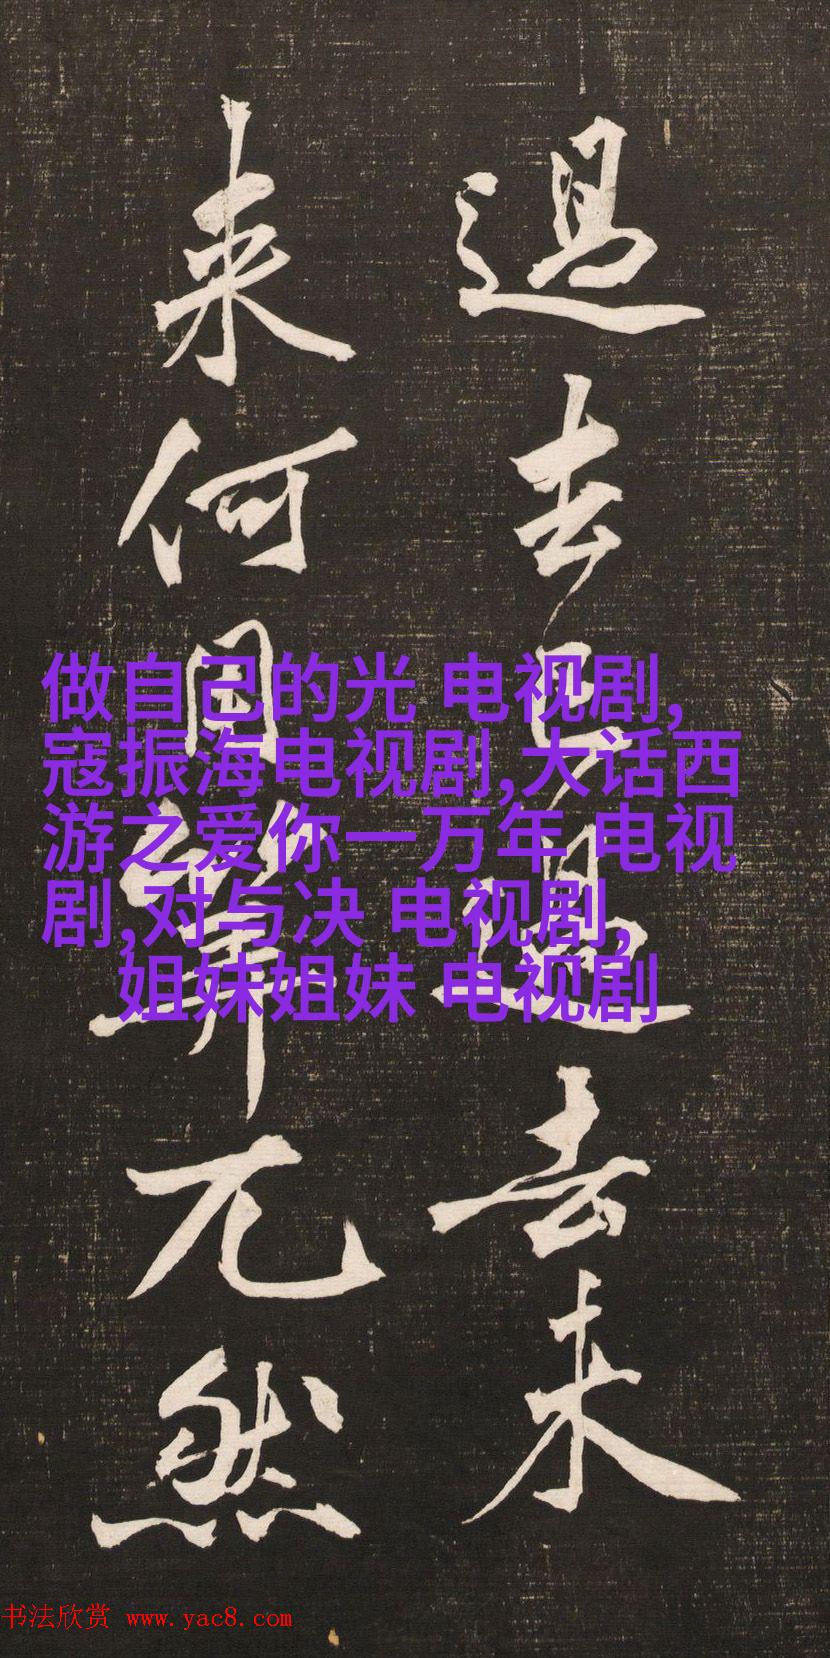 過去已過去未
来何用算兀然
做自己的光 电视剧,
寇振海电视剧,大话西
游之爱你一万年 电视
剧,对与决 电视剧,
姐妹姐妹 电视剧
书法欣赏 www.yac8.com